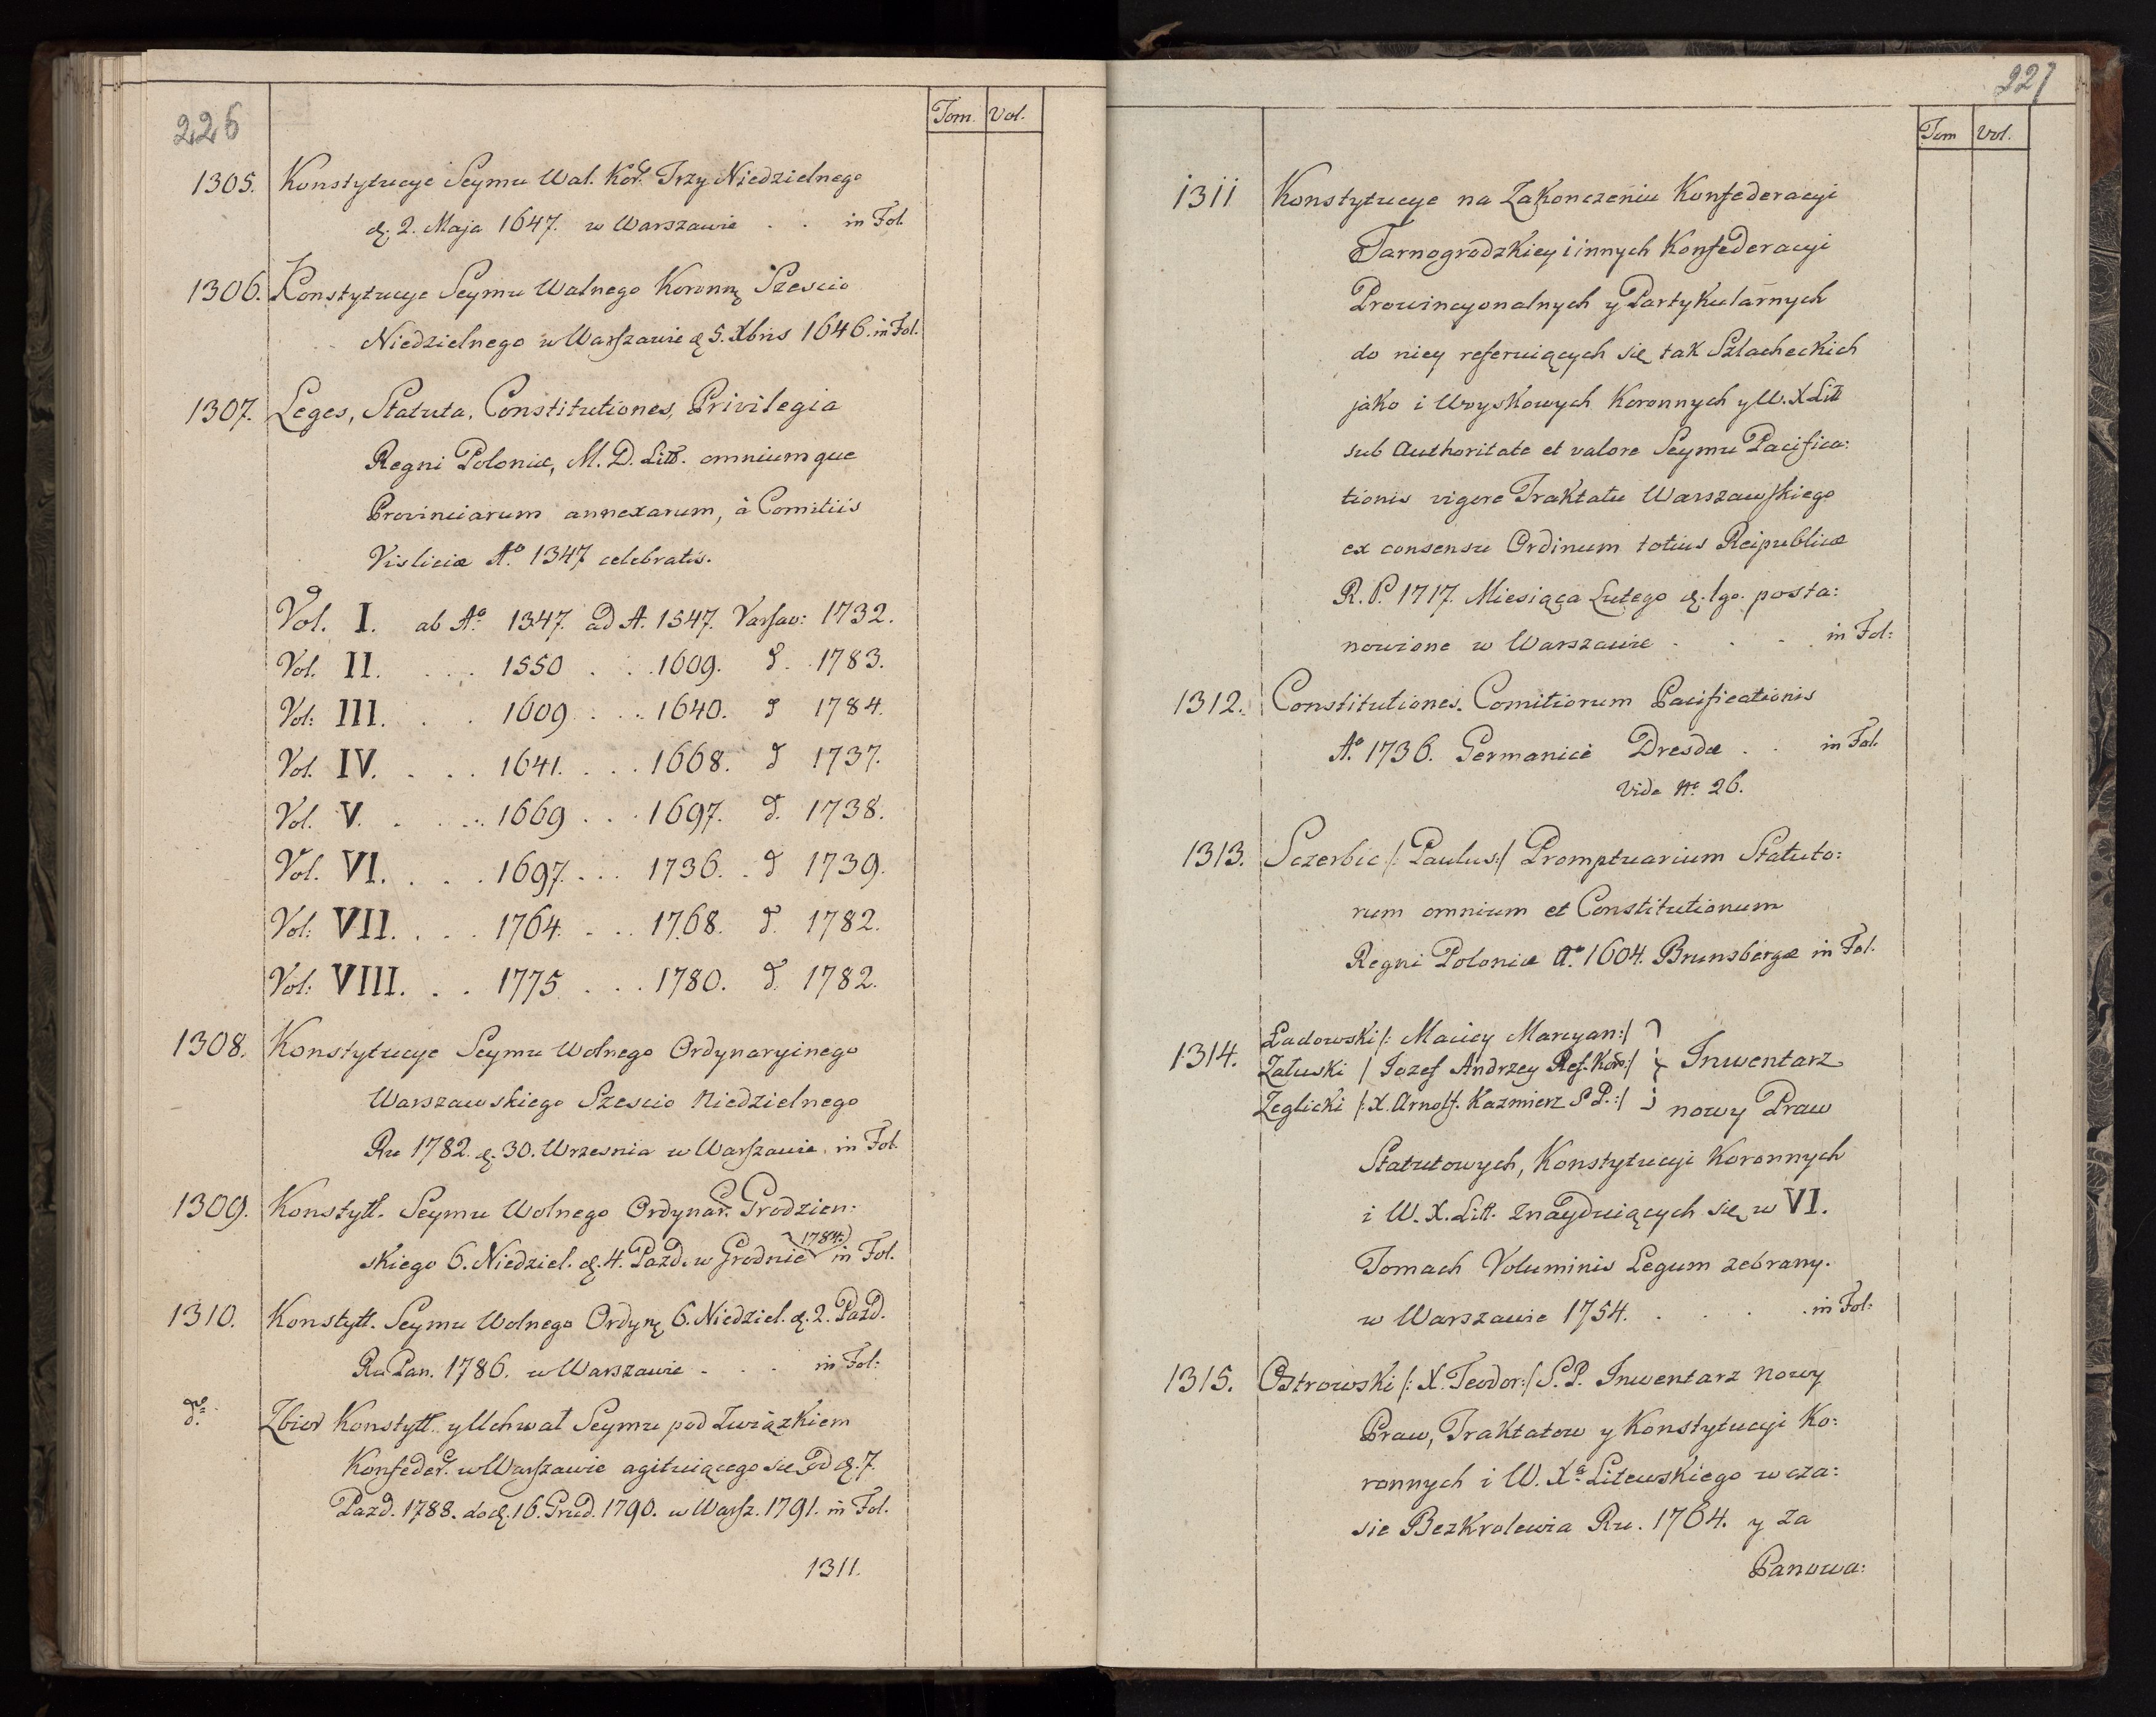 226
Tom. Vol.
1305. Konstytucye Seymu Wal. Kor. Trzy Niedzielnego
d. 2. Maja 1647. w Warszawie . . in Fol.
1306. Konstytucye Seymu Walnego Koronn Szescio
Niedzielnego w Warszawie d 5. Xbris 1646. in Fol.
1307. Leges, Statuta, Constitutiones, Privilegia
Regni Poloniæ, M. D. Litt. omniumque
Provinciarum annexarum, à Comitiis
Visliciæ Aº 1347 celebratis.
Vol. I. ab Aº 1347. ad A. 1547. Varsav: 1732.
Vol. II. . . . 1550 . . . 1609. d. . 1783.
Vol: III. . . . 1609 . . . 1640. d 1784.
Vol. IV. . . . 1641. . . . 1668. d 1737.
Vol. V. . . . . 1669 . . . 1697. d. 1738.
Vol. VI. . . . 1697. . . . 1736. . d 1739.
Vol: VII. . . . 1764 . . . 1768. d. 1782.
Vol: VIII. . . 1775 . . . 1780. d. 1782.
1308. Konstytucye Seymu Wolnego Ordynaryinego
Warszawskiego Szescio Niedzielnego
Ru 1782. d. 30. Wrzesnia w Warszawie. in Fol.
1309. Konstytt. Seymu Wolnego Ordynar. Grodzien:
skiego 6. Niedziel. d. 4. Pazd. w Grodnie 1784. in Fol.
1310. Konstytt. Seymu Wolnego Ordyn 6. Niedziel. d. 2. Pazd.
Ru Pan. 1786. w Warszawie . . . in Fol:
dº Zbior Konstytt. y Uchwał Seymu pod Związkiem
Konfeder. w Warszawie agituiącego się od d. 7.
Pazd. 1788. do d. 16. Grud. 1790. w Warsz. 1791. in Fol.
1311.
227
Tom Vol.
1311 Konstytucye na Zakonczeniu Konfederacyi
Tarnogrodzkiey i innych Konfederacyi
Prowincyonalnych y Partykularnych
do niey referuiących się tak Szlacheckich
jako i Woyskowych Koronnych y W. X Litt
sub Authoritate et valore Seymu Pacifica:
tionis vigore Traktatu Warszawskiego
ex consensu Ordinum totius Reipublicæ
R. P. 1717. Miesiąca Lutego d. 1go. posta:
nowione w Warszawie . . . in Fol:
1312. Constitutiones Comitiorum Pacificationis
Aº 1736. Germanicè Dresdæ . . in Fol.
Vide Nº 26.
1313. Sczerbic /: Paulus :/ Promptuarium Statuto:
rum omnium et Constitutionum
Regni Poloniæ Aº 1604. Brunsbergæ in Fol.
Ładowski /: Maciey Marcyan :/
1314. Załuski / Jozef Andrzey Ref. Kor :/ } Inwentarz
Zeglicki /: X. Arnolf. Kazmierz S P. :/ nowy Praw
Statutowych, Konstytucyi Koronnych
i W. X. Litt. znayduiących się w VI.
Tomach Voluminis Legum zebrany.
w Warszawie 1754. . . . . in Fol:
1315. Ostrowski /: X. Teodor :/ S. P. Inwentarz nowy
Praw, Traktatow y Konstytucyi Ko:
ronnych i W. Xª Litewskiego w cza:
sie Bezkrolewia Ru. 1764. y za
Panowa: